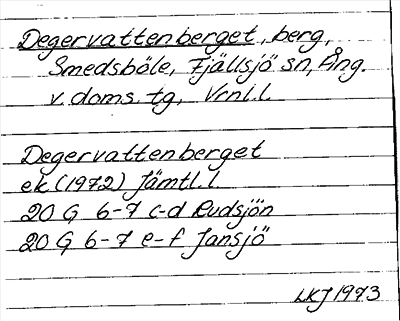 Degervattenberget, berg,
Smedsböle, Fjällsjö sn, Ång.
v. doms. tg, Vrnl.l.
Degervattenberget
ek (1972) Jämtl. l
20 G 6-7 c-d Rudsjön
20 G 6-7 e-f Jansjö
LKJ 1973